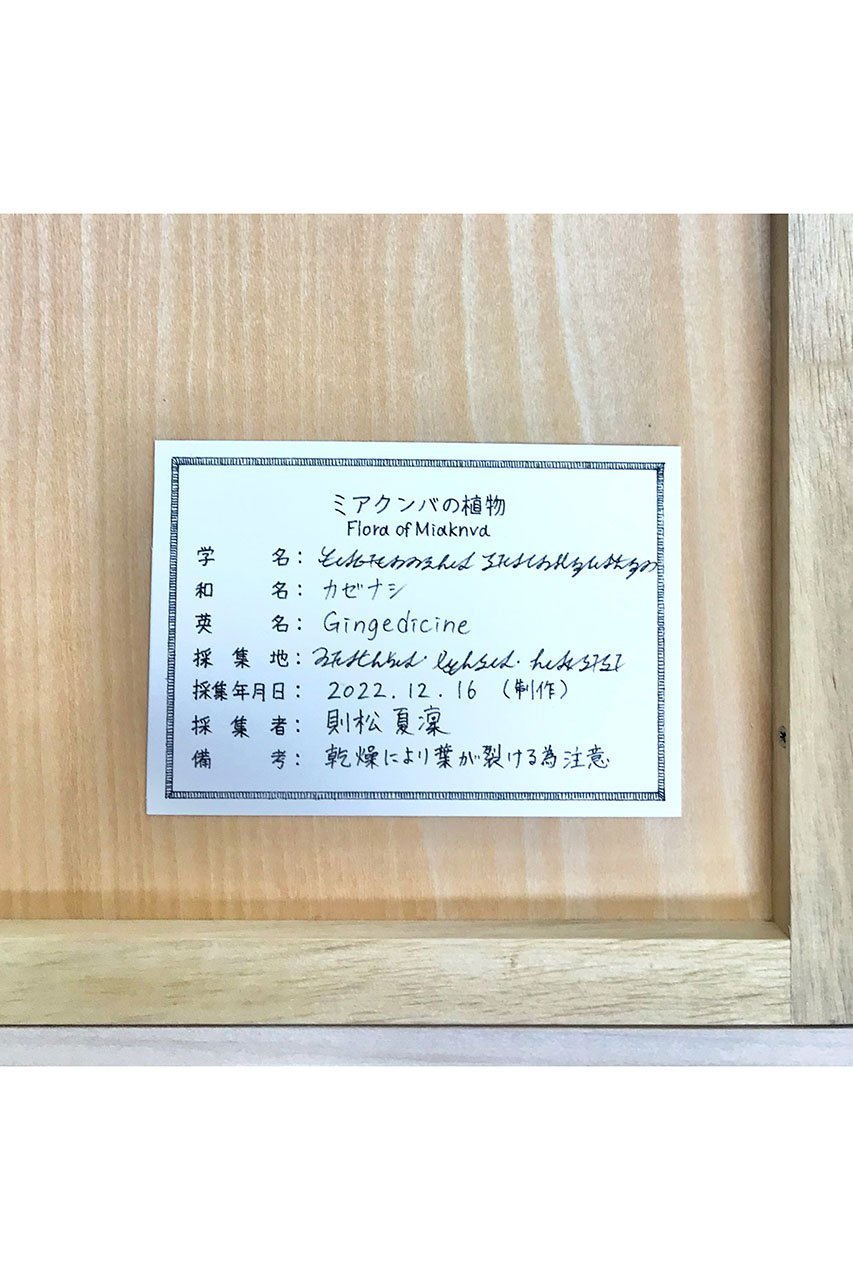 ミアクンバの植物
Flora of Miaknva
学名:
和名: カゼナシ
英名: Gingedicine
採集地:
採集年月日: 2022.12.16 (制作)
採集者: 則松 夏凜
備考: 乾燥により葉が裂ける為注意